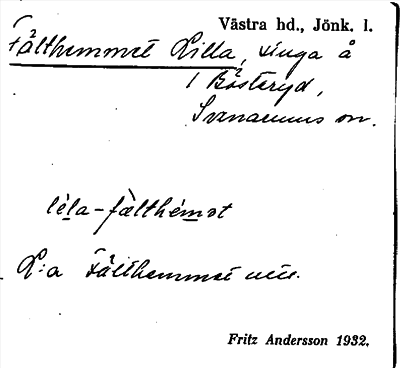 Västra hd., Jönk. l.
Fälthemmet Lilla, äuga å
1 Bösteryd,
Svenarums sn.
lèla-fàlthémət
L:a Fälthemmet
Fritz Andersson 1932.